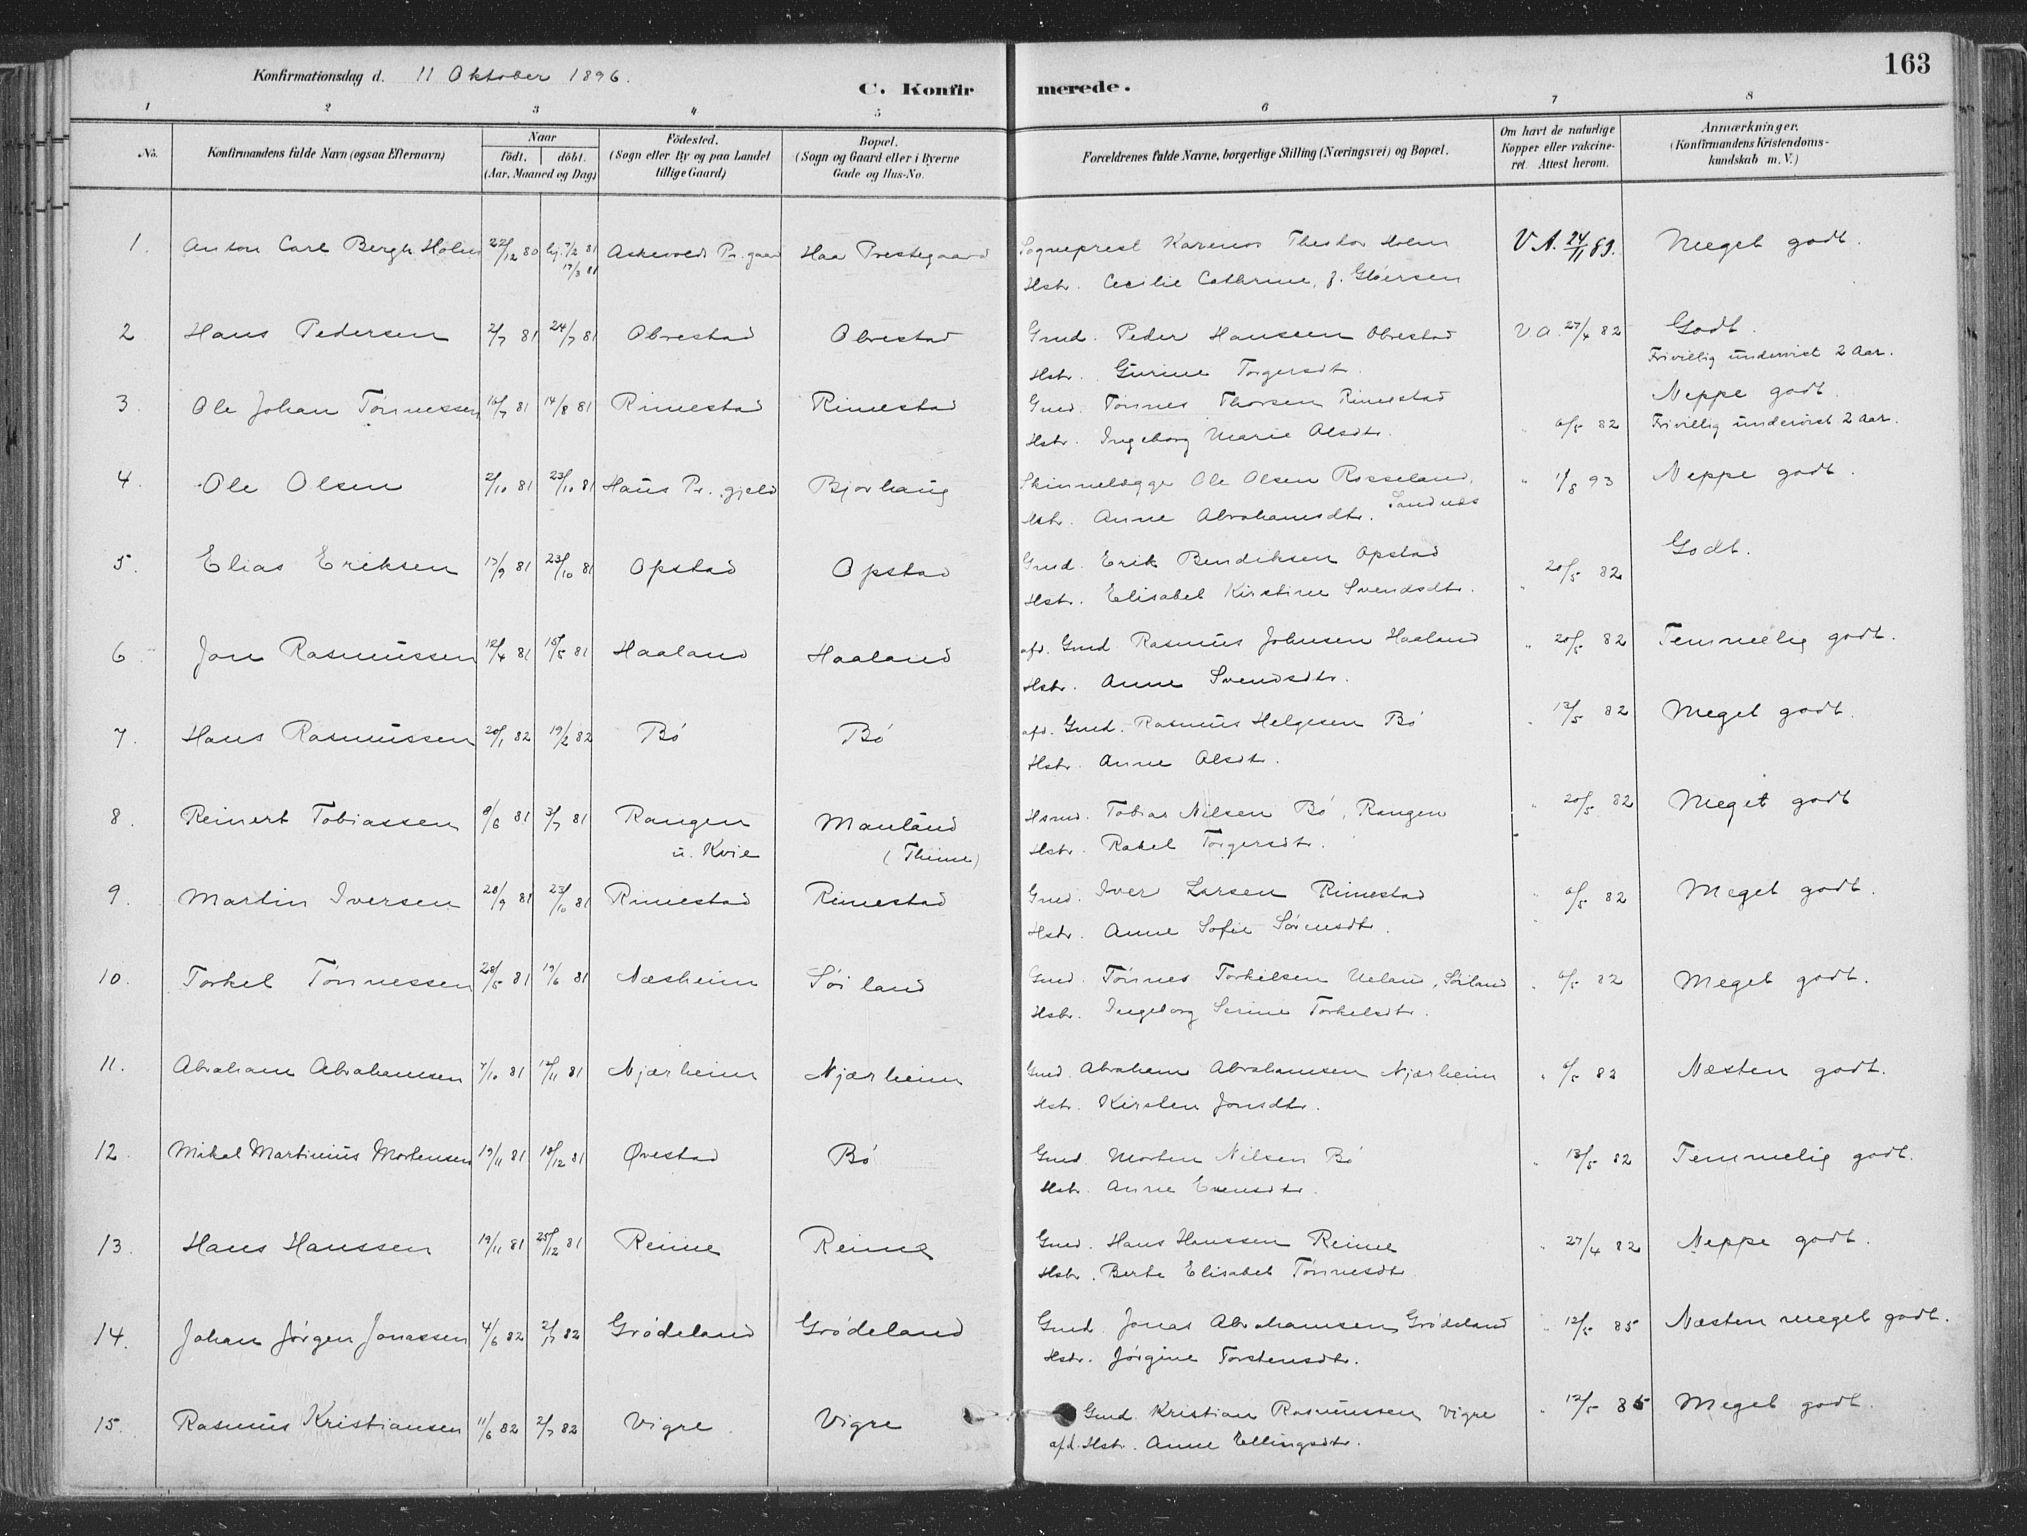 163
Konfirmationsdag d. 11 Oktober 1896.
C. Konfirmerede.
1 2 3 4 5 6 7 8
No.
Konfirmandens fulde Navn (ogsaa Efternavn)
Naar
födt. döbt.
(Aar, Maaned og Dag)
Födested.
(Sogn eller By og paa Landet
tillige Gaard)
Bopæl.
(Sogn og Gaard eller i Byerne
Gade og Hus-No.
Forældrenes fulde Navne, borgerlige Stilling (Næringsvei) og Bopæl.
Om havt de naturlige
Kopper eller vakcine-
ret. Attest herom.
Anmærkninger.
(Konfirmandens Kristendoms-
kundskab m. V.)
1. Anton Carl Bergh Holm 22/12 80 hj. 7/2 81 Askevold Pr. gaard Haa Prestegaard Sogneprest Karenus Theodor Holm V.A. 24/11 89. Meget godt.
13/3 81
Hstr. Cecilie Cathrine, f. Gløersen
2 Hans Pedersen 2/7 81 24/7 81 Obrestad Obrestad Gmd. Peder Hanssen Obrestad V A. 27/4 82 Godt.
Hstr. Gurine Torgersdtr. Frivillig undervist 2 Aar.
3. Ole Johan Tønnessen 10/7 81 14/8 81 Rimestad Rimestad Gmd. Tønnes Thorsen Rimestad Neppe godt.
Hstr. Ingeborg Marie Olsdtr. " 6/5 82 Frivillig undervist 2 Aar.
4. Ole Olsen 2/10 81 23/10 81 Haus Pr. gjeld Bjorhaug Skinnelægge Ole Olsen Rosseland, " 1/8 93 Neppe godt.
Sandnæs
Hstr. Anne Abrahamsdtr.
5. Elias Eriksen 13/9 81 23/10 81 Opstad Opstad Gmd. Erik Bendiksen Opstad " 20/5 82 Godt.
Hstr. Elisabet Kirstine Svendsdtr.
6. Jon Rasmussen 12/4 81 15/5 81 Haaland Haaland afd. Gmd Rasmus Johnsen Haaland " 20/5 82 Temmelig godt.
Hstr. Anne Svendsdtr.
7. Hans Rasmussen 20/1 82 19/2 82 Bø Bø afd. Gmd. Rasmus Helgesen Bø " 13/5 82 Meget godt.
Hstr. Anne Olsdtr.
8. Reinert Tobiassen 9/6 81 3/7 81 Rangen Mauland Hsmd. Tobias Nilsen Bø, Rangen " 20/5 82 Meget godt
u. Kvie (Thime) Hstr. Rakel Torgersdtr.
9. Martin Iversen 28/9 81 23/10 81 Rimestad Rimestad Gmd. Iver Larsen Rimestad " 6/5 82 Meget godt.
Hstr. Anne Sofie Sørensdtr.
10. Torkel Tønnessen 28/5 81 19/6 81 Næsheim Søiland Gmd. Tønnes Torkelsen Ueland, Søiland " 6/5 82 Meget godt.
Hstr. Ingeborg Serine Torkelsdtr.
11. Abraham Abrahamsen 7/10 81 13/11 81 Njærheim Njærheim Gmd. Abraham Abrahamsen Njærheim " 6/5 82 Næsten godt.
Hstr. Kirsten Jonsdtr.
12. Mikal Martinius Mortensen 19/11 81 18/12 81 Øvestad Bø Gmd. Morten Nilsen Bø " 13/5 82 Temmelig godt.
Hstr. Anne Evensdtr.
13. Hans Hanssen 19/11 81 25/12 81 Reime Reime Gmd. Hans Hanssen Reime " 27/4 82 Neppe godt.
Hstr. Berte Elisabet Tønnesdtr.
14. Johan Jørgen Jonassen 4/6 82 2/7 82 Grødeland Grødeland Gmd. Jonas Abrahamsen Grødeland " 12/5 85 Næsten meget godt.
Hstr. Jørgine Torstensdtr.
15. Rasmus Kristiansen 11/6 82 2/7 82 Vigre Vigre Gmd. Kristian Rasmussen Vigre " 12/5 85 Meget godt.
afd. Hstr. Anne Ellingsdtr.